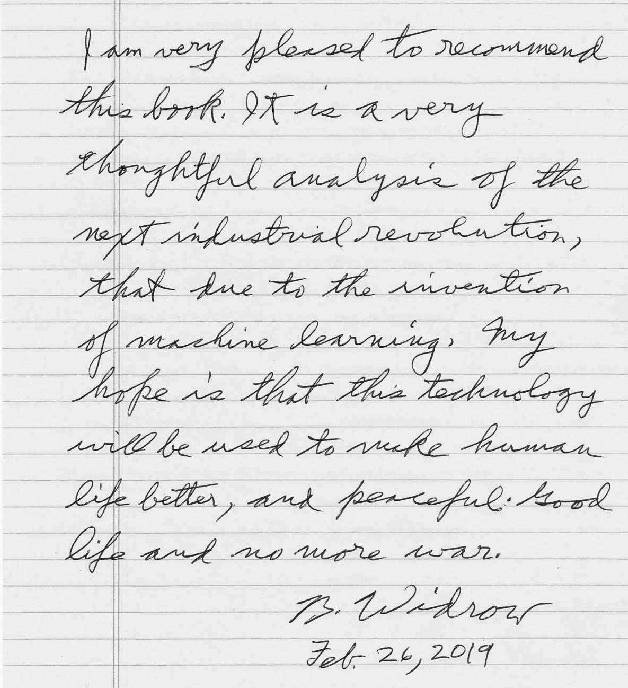 I am very pleased to recommend
this book. It is a very
thoughtful analysis of the
next industrial revolution,
that due to the invention
of machine learning. My
hope is that this technology
will be used to make human
life better, and peaceful. Good
life and no more war.
B. Widrow
Feb. 26, 2019